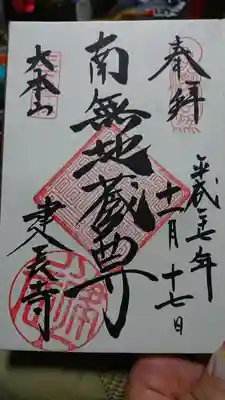 奉拝
平成年
十一月十七日
南無地蔵尊
大本山
建長寺